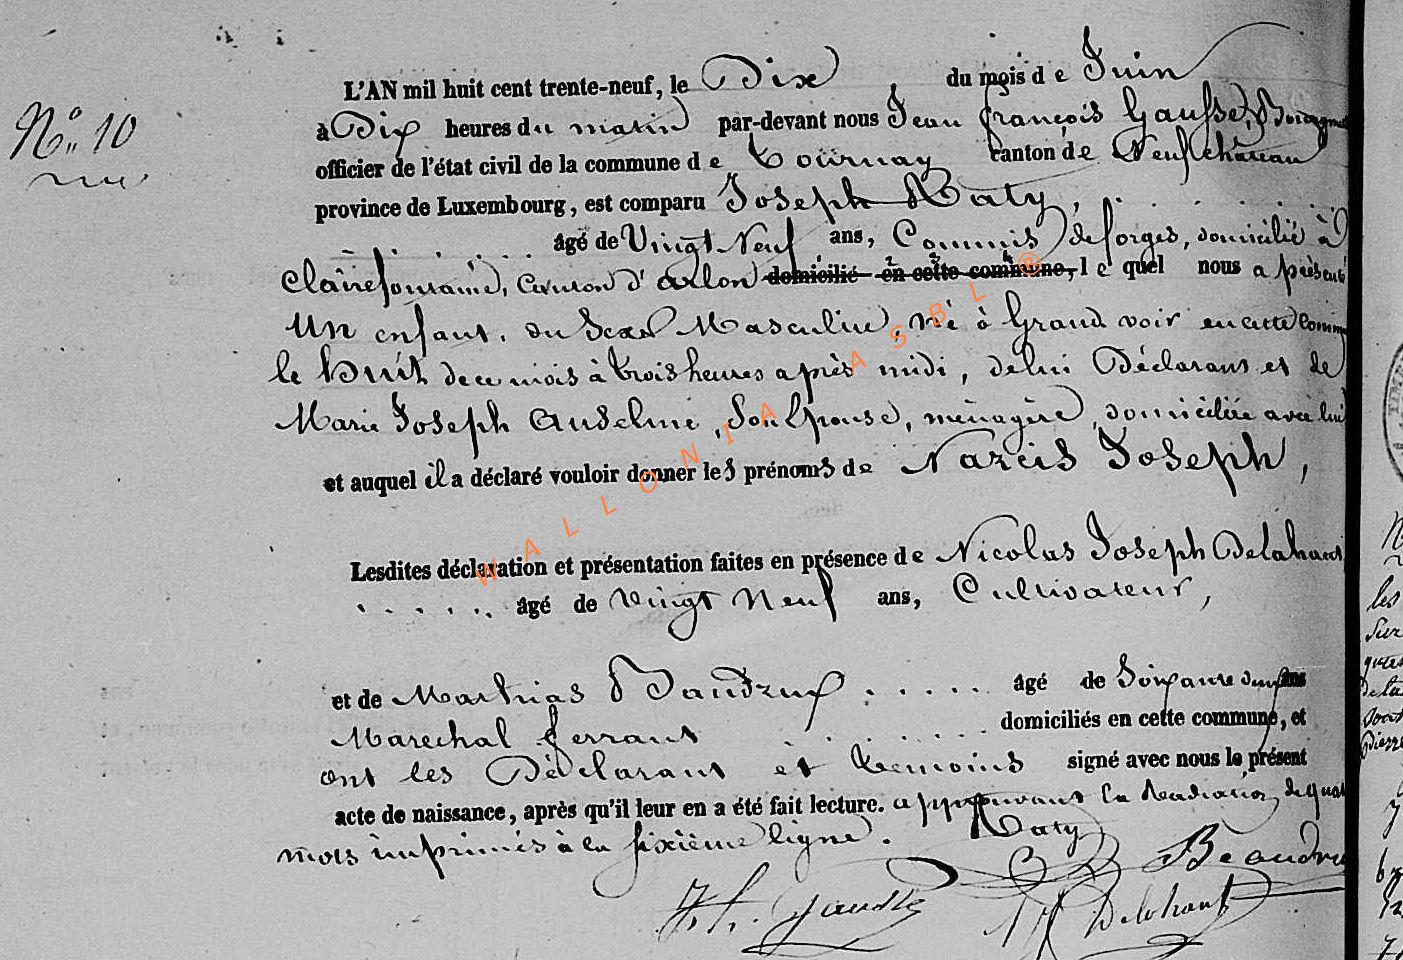 N° 10
L'AN mil huit cent trente-neuf, le Dix du mois de Juin
à Dix heures du matin par-devant nous Jean françois Gausset, Bourgme
officier de l'état civil de la commune de Tournay canton de Neufchâteau
province de Luxembourg, est comparu Joseph Raty,
âgé de Vingt Neuf ans, Commis de forges, domicilié à
Clairefontaine, Canton d'arlon domicilié en cette commune, le quel nous a présenté
Un enfant, du Sexe Masculin, né à Grand voir en cette Commu
le huit de ce mois à trois heures après midi, de lui Déclarant et de
Marie Joseph Anselme, Son Epouse, ménagère, domiciliée avec lui
et auquel il a déclaré vouloir donner les prénoms de Narcis Joseph,
Lesdites déclaration et présentation faites en présence de Nicolas Joseph Delahaut
âgé de Vingt Neuf ans, Cultivateur,
et de Mathias Baudrux âgé de Soixante deux ans
Marechal ferrant domiciliés en cette commune, et
ont les Déclarant et temoins signé avec nous le présent
acte de naissance, après qu'il leur en a été fait lecture. approuvant la Radiation de quat
mots imprimés à la sixième ligne. Raty
Beaudru
J. f. Gausset N J Delahaut
WALLONIA ASBL @
les
Sur